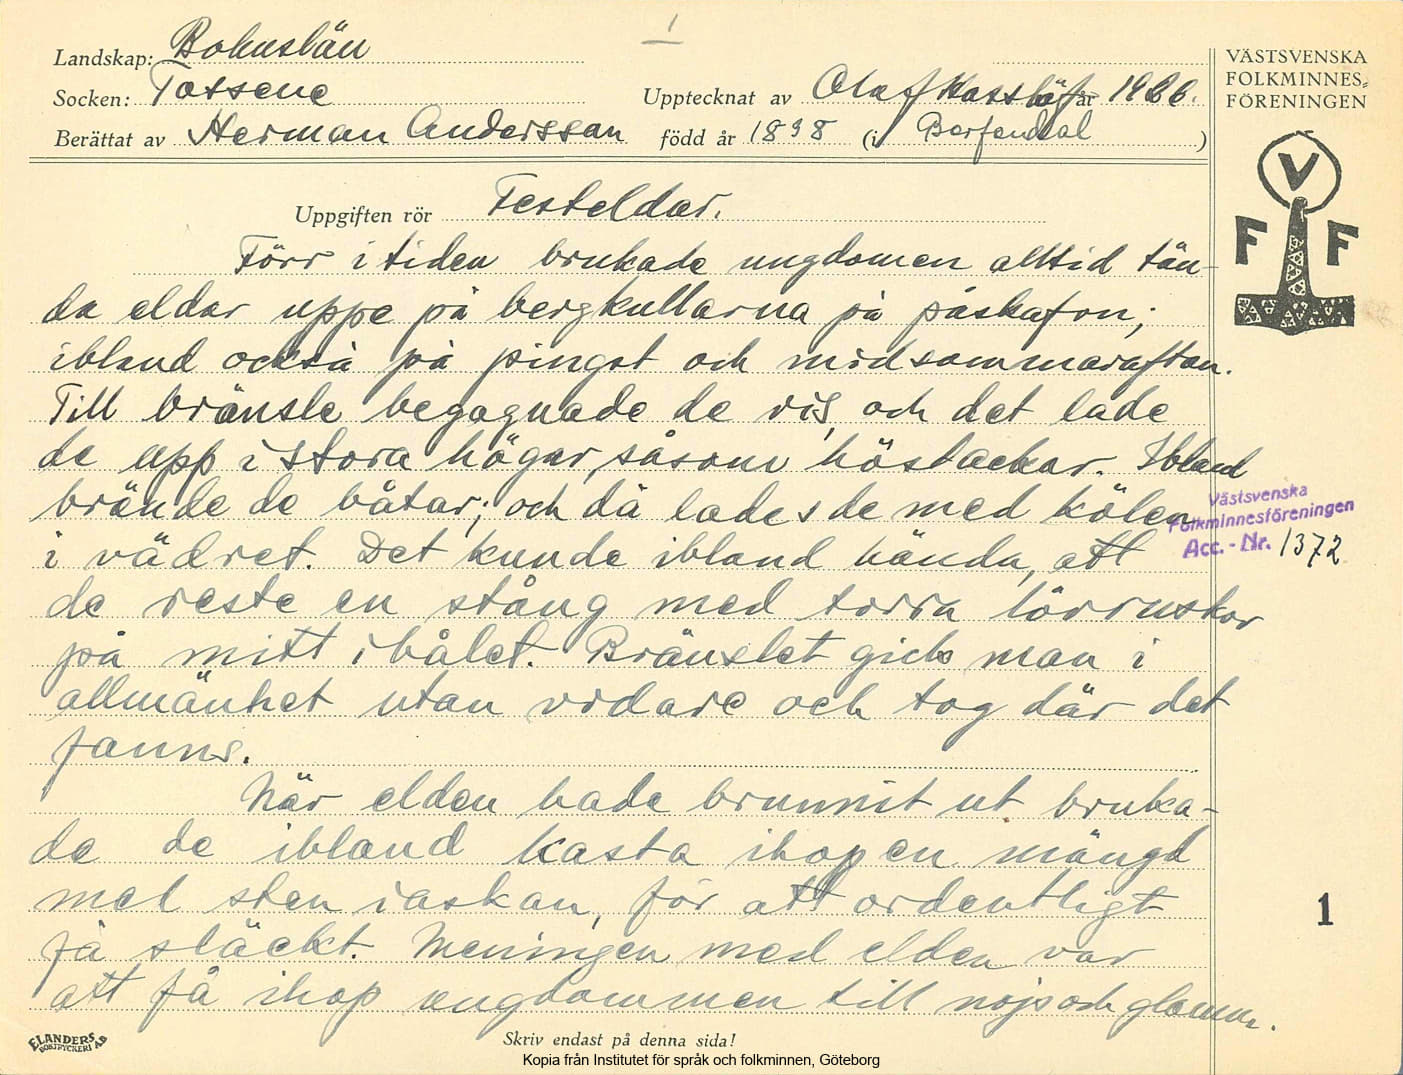 1
Landskap: Bohuslän
Socken: Tossene
Upptecknat av Olof Hasslöf år 1926.
Berättat av Herman Andersson född år 1898 (i Berfendal )
VÄSTSVENSKA
FOLKMINNES=
FÖRENINGEN
V
F F
Uppgiften rör Festeldar.
Förr i tiden brukade ungdomen alltid tän-
da eldar uppe på bergkullarna på påskafton;
ibland också på pingst och midsommarafton.
Till bränsle begagnade de ris, och det lade
de upp i stora högar, såsom höstackar. Ibland
brände de båtar; och då lades de med kölen
i vädret. Det kunde ibland hända, att
de reste en stång med torra lörruskor
på mitt i bålet. Bränslet gick man i
allmänhet utan vidare och tog där det
fanns.
Västsvenska
Folkminnesföreningen
Acc. - Nr. 1372
När elden hade brunnit ut bruka-
de de ibland kasta ihop en mängd
med sten i askan, för att ordentligt
få släckt. Meningen med elden var
att få ihop ungdommen till nöjs och glamm.
1
ELANDERS
BOKTRYCKERI AB
Skriv endast på denna sida!
Kopia från Institutet för språk och folkminnen, Göteborg